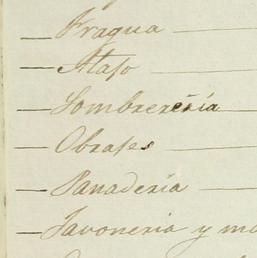 Fragua
Atajo
Sombrereria
Obrajes
Panaderia
Javoneria y